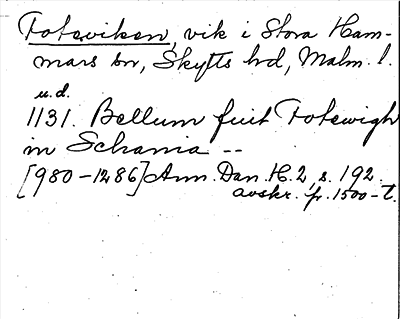 Foteviken, vik i Stora Ham-
mars sn, Skytts hd, Malm. l.
u.d.
1131. Bellum fuit Fotewigh
in Schania --
[980-1286] Ann. Dan. H. 2, s. 192.
avskr. fr. 1500-t.